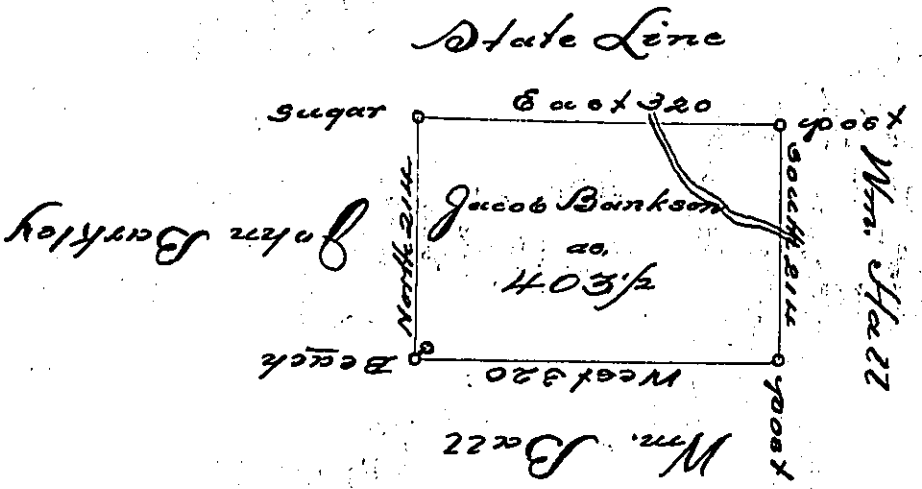 State Line
Sugar
East 320
post
Wm. Hall
South 214
Jacob Bankson
ac.
403½
North 214
John Barkley
Beach
West 320
post
Wm. Ball